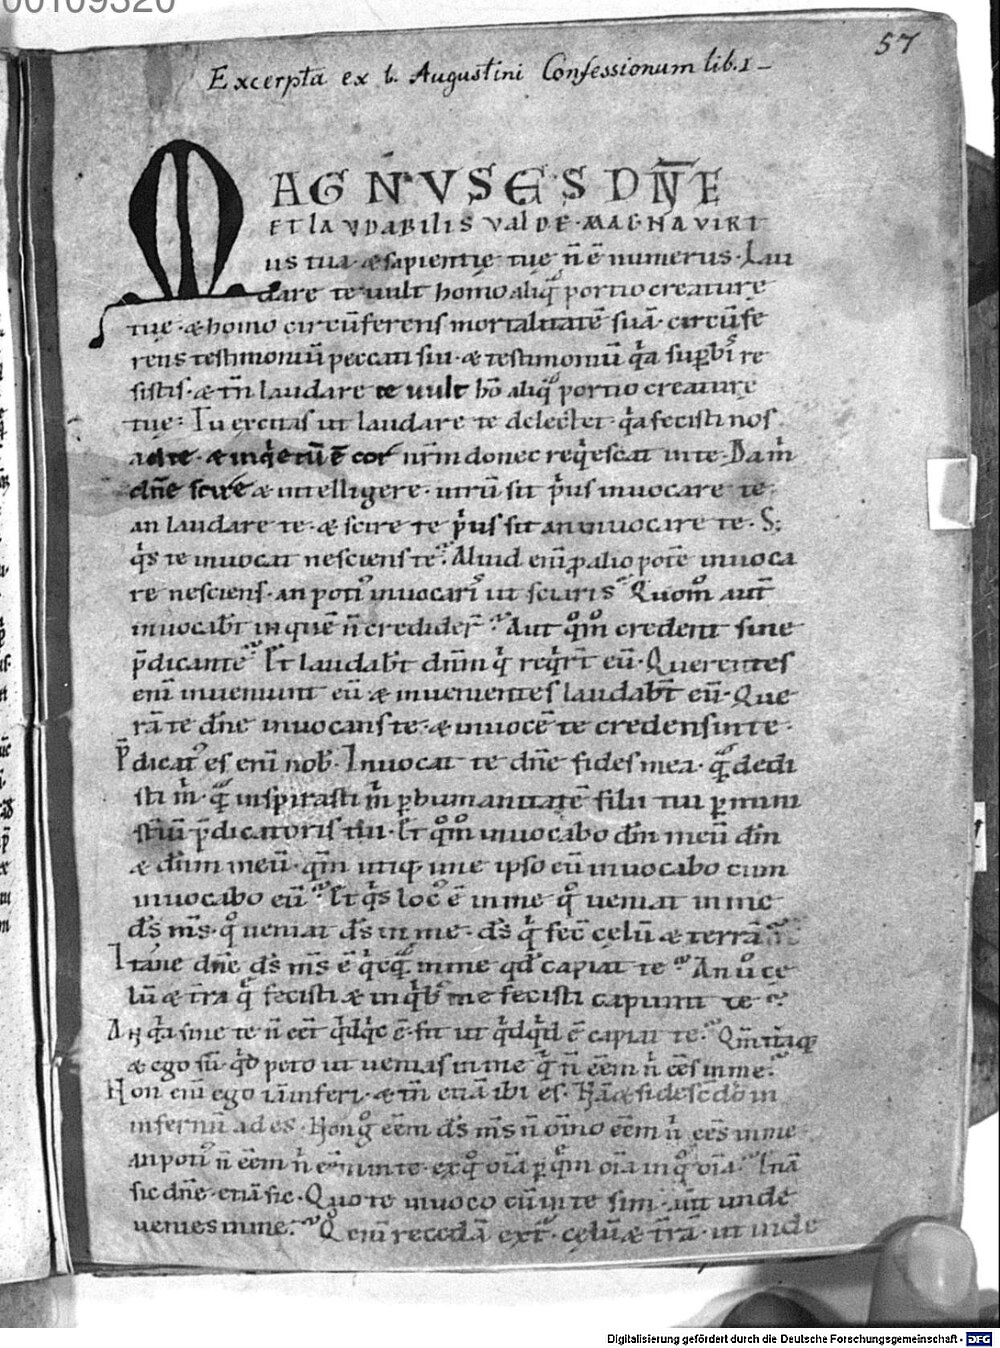 00109320
57
Excerpta ex b. Augustini Confessionum lib. 1 –
MAGNVS ES DN̄E
ET LAVDABILIS VALDE · MAGNA VIRT
us tua · & sapientię tuę n̄ ē numerus · Lau
dare te uult homo aliq̄ portio creaturę
tuę · & homo circūferens mortalitatē suā · circūfe
rens testimoniū peccati sui · & testimoniū q̇a supbis re
sistis · & tn̄ laudare te uult hō aliq̄ portio creaturę
tuę : Tu excitas ut laudare te delectet · q̇a fecisti nos
ad te · & inq̇etū ē cor nr̄m donec req̇escat in te · Da m̍
dn̄e scire & intelligere · utrū sit p̍us inuocare te
an laudare te · & scire te p̍us sit an inuocare te · S;
q̍s te inuocat nesciens te? Aliud eni p alio potē inuoca
re nesciens · an poti᾽ inuocaris ut sciaris? Quom̊ aut̄
inuocabt̄ in quē n̄ crediderт̄? Aut q̊m̊ credent sine
p̄dicante? Et laudabt̄ dnm̄ q̍ req̍rt̄ eū · Querentes
eni inueniunt eū & inuenientes laudabt̄ eū · Que
rā te dn̄e inuocans te · & inuocē te credens in te ·
P̄dicat᾽ es eni nob̄ · Inuocat te dn̄e fides mea · q̄ dedi
sti m̍ · q̄ inspirasti m̍ p humanitatē filii tui p mini
steriū p̄dicatoris tui · Et q̊m̊ inuocabo dm̄ meū dm̄
& dnm̄ meū · qm̄ utiq; in me ipso eū inuocabo cum
inuocabo eū? Et q̍s loc᾽ ē in me q̊ ueniat in me
ds̄ ms̄ · q̊ ueniat ds̄ in me · ds̄ q̍ fec̄ cęlū & terrā?
Itane dn̄e ds̄ ms̄ ē q̍cq̄ in me qd̄ capiat te? An ů cę
lū & tr̄a q̍ fecisti & in q̍b᾽ me fecisti capiunt te?
An q̇a sine te n̄ eēt q̍dq̍d ē · fit ut q̍dq̍d ē capiat te? Qm̄ itaq;
& ego sū · q̍d peto ut uenias in me q̍ n̄ eēm n̍ eēs in me?
Non eni ego iā inferi · & tn̄ etiā ibi es · Nā & si descēdo in
infernū ades · Non g̊ eēm ds̄ ms̄ n̄ oīno eēm n̍ eēs in me
an poti᾽ n̄ eēm n̍ eēm in te · ex q̊ oīa p quē oīa in q̊ oīa? Etiā
sic dn̄e · etiā sic · Quo te inuoco cū in te sim · aut unde
uenies in me? Q eni recedā ext̄ · cęlū & tr̄ā · ut inde
Digitalisierung gefördert durch die Deutsche Forschungsgemeinschaft - DFG